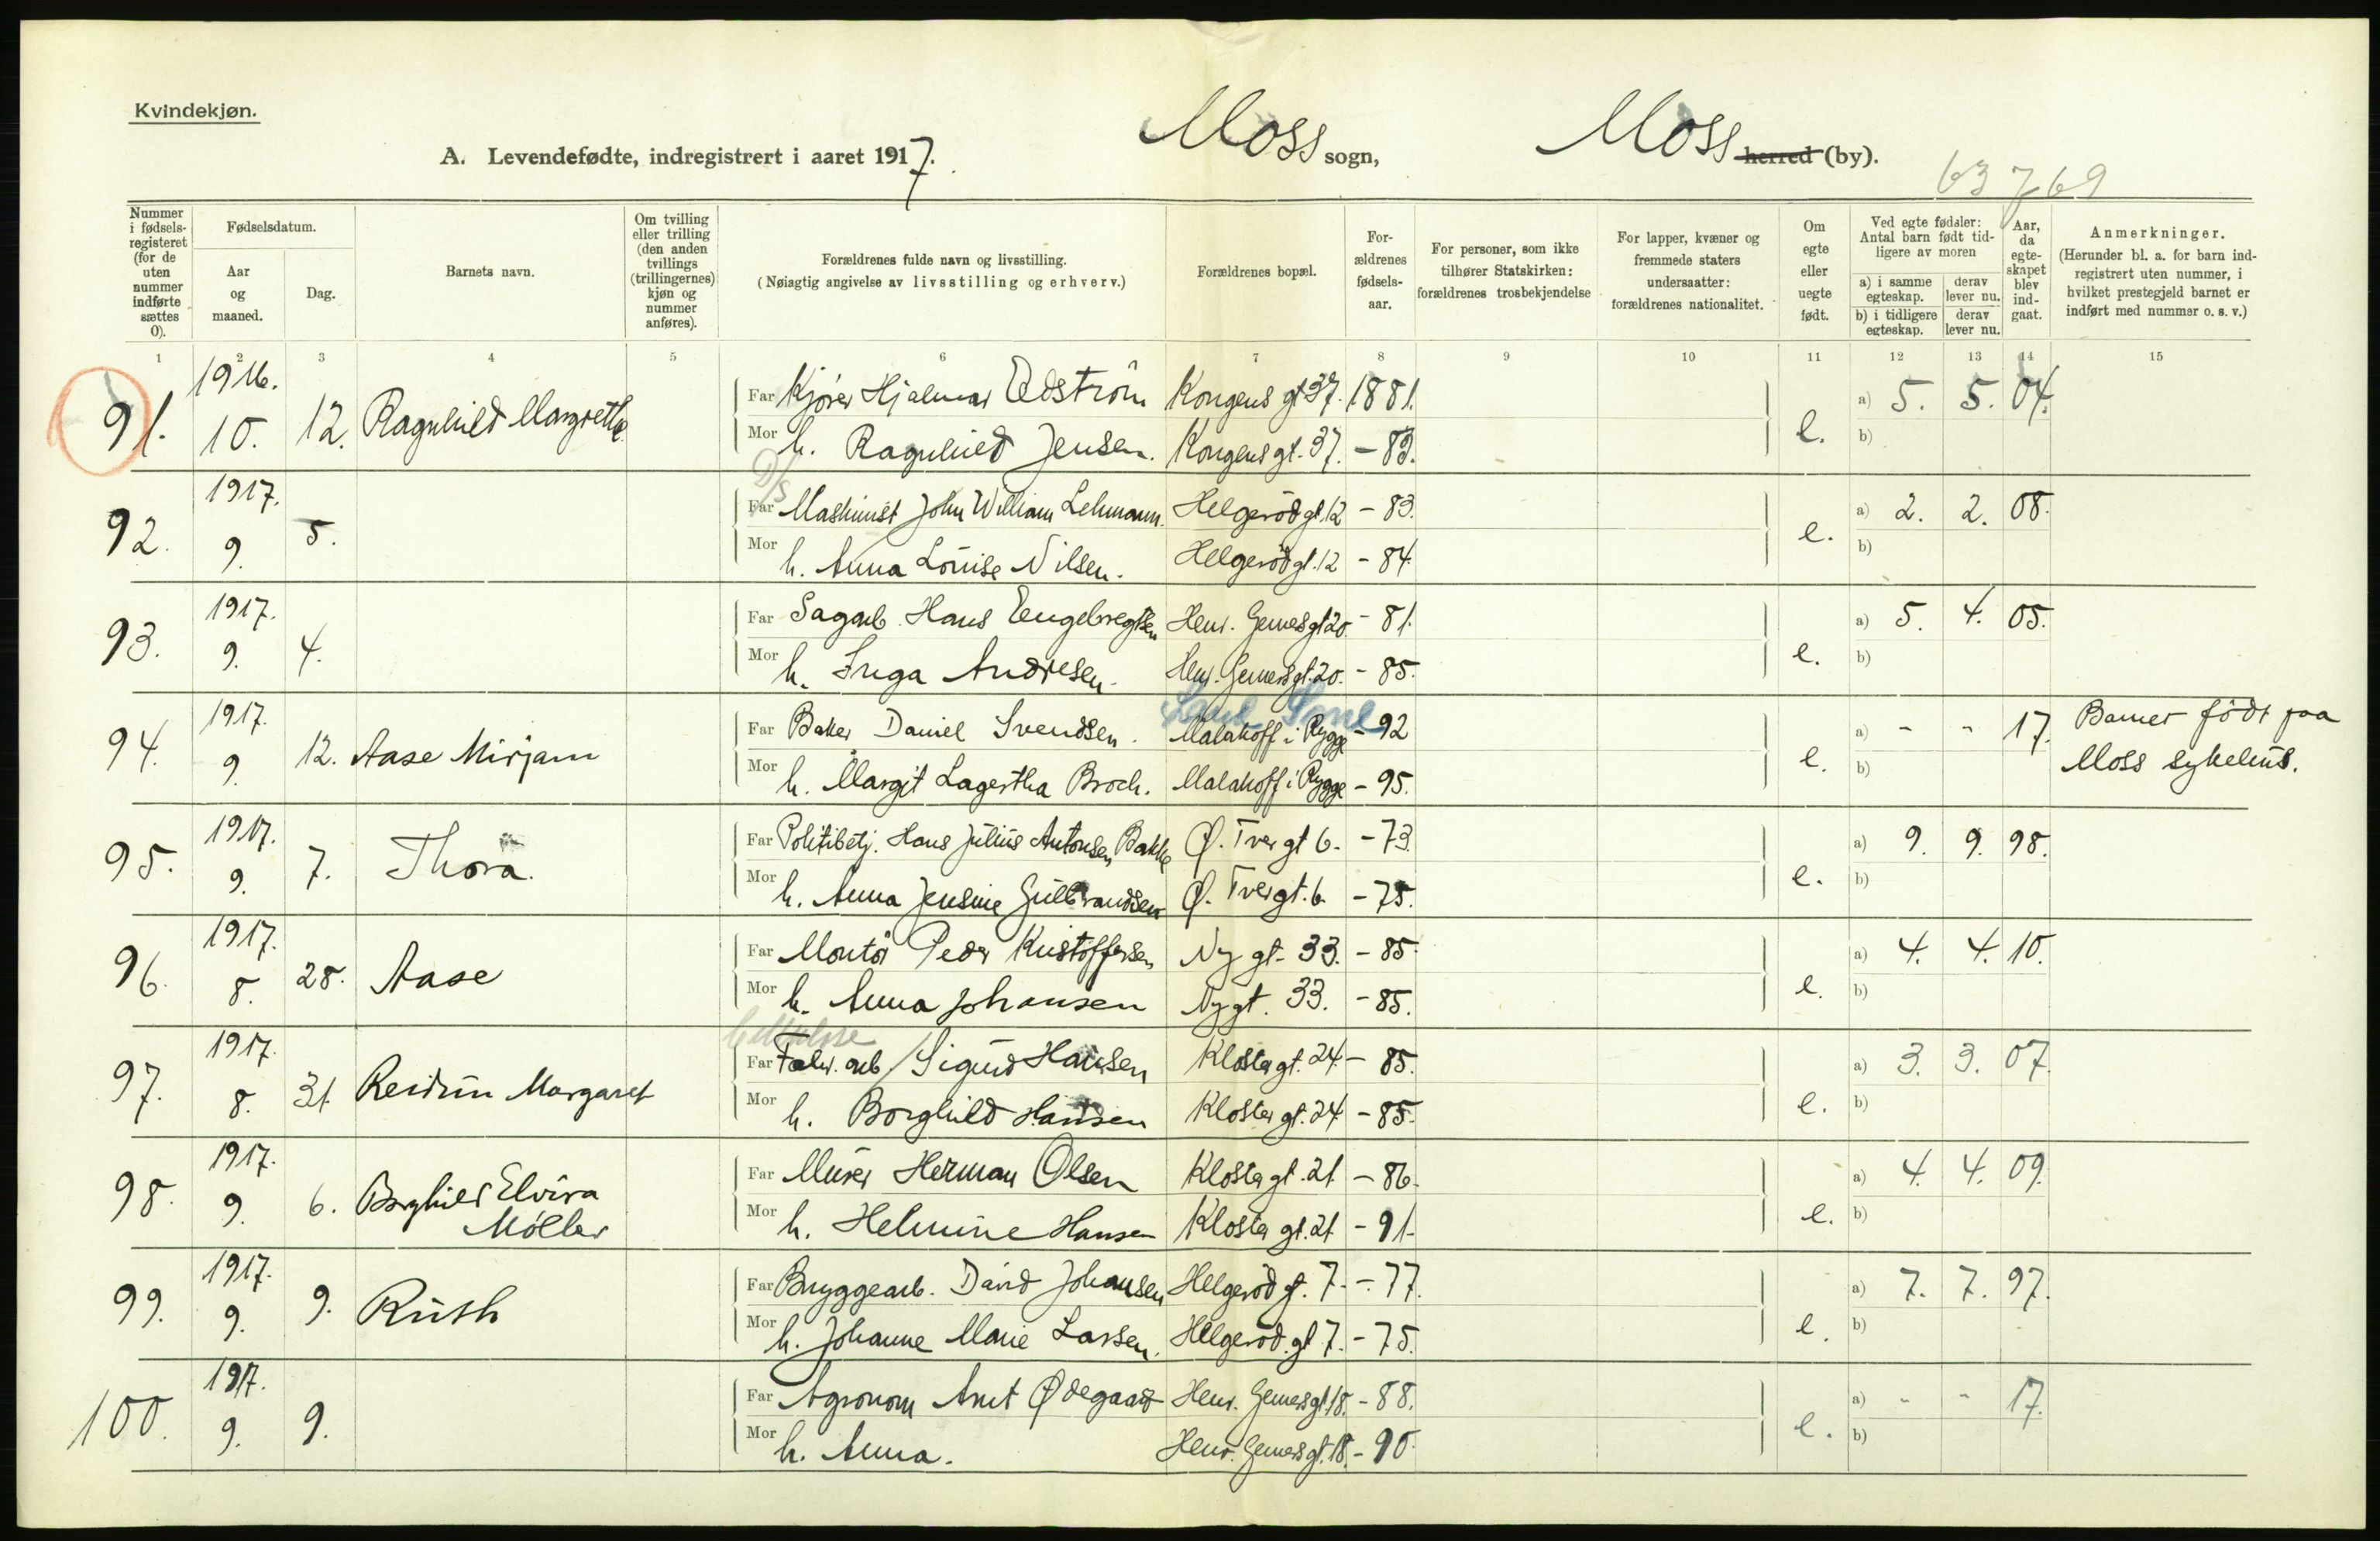 Kvindekjøn.
A. Levendefødte, indregistrert i aaret 1917.
Moss sogn,
Moss herred (by).
63 769
Nummer i fødsels-registeret (for de uten nummer indførte sættes 0).
Fødselsdatum.
Aar og maaned.
Dag.
Barnets navn.
Om tvilling eller trilling (den anden tvillings (trillingernes) kjøn og nummer anføres).
Forældrenes fulde navn og livsstilling.
(Nøiagtig angivelse av livsstilling og erhverv.)
Forældrenes bopæl.
For-ældrenes fødsels-aar.
For personer, som ikke tilhører Statskirken: forældrenes trosbekjendelse
For lapper, kvæner og fremmede staters undersaatter: forældrenes nationalitet.
Om egte eller uegte født.
Ved egte fødsler: Antal barn født tid-ligere av moren
a) i samme egteskap.
derav lever nu.
b) i tidligere egteskap.
derav lever nu.
Aar, da egte-skapet blev ind-gaat.
Anmerkninger.
(Herunder bl. a. for barn ind-registrert uten nummer, i hvilket prestegjeld barnet er indført med nummer o. s. v.)
1 2 3 4 5 6 7 8 9 10 11 12 13 14 15
1916.
91. 10. 12. Ragnhild Margrethe
Far Kjører Hjalmar Edström Kongens gt 37. 1881. a) 5. 5. 04.
Mor h. Ragnhild Jensen. Kongens gt. 37. - 83. e. b)
D/S
1917.
92. 9. 5.
Far Maskinist John William Lehmann. Helgerödgt. 12 - 83. a) 2. 2. 08.
Mor h. Anna Louise Nilsen. Helgerödgt. 12 - 84. e. b)
1917.
93. 9. 4.
Far Sagarb. Hans Engebregtsen Henr. Gernersgt 20. - 81. a) 5. 4. 05.
Mor h. Inga Andresen. Henr. Gernersgt. 20. - 85. e. b)
1917.
94. 9. 12. Aase Mirjam
Far Baker Daniel Svendsen. Malakoff i Rygge - 92 a) - - 17. Barnet födt paa
Mor h. Margit Lagertha Broch. Malakoff i Rygge - 95. e. b) Moss sykehus.
1917.
95. 9. 7. Thora.
Far Politibetj. Hans Julius Antonsen Bakke Ø. Tvergt 6. - 73. a) 9. 9. 98.
Mor h. Anna Jensine Gulbrandsen Ø. Tvergt. 6. - 75. e. b)
1917.
96. 8. 28. Aase
Far Montör Peder Kristoffersen Ny gt. 33. - 85. a) 4. 4. 10.
Mor h. Anna Johansen Ny gt. 33. - 85. e. b)
Cellulose
1917.
97. 8. 31 Reidun Margaret
Far Fabr. arb. Sigurd Hansen Klostergt. 24 - 85. a) 3. 3. 07.
Mor h. Borghild Hansen Klostergt. 24 - 85. e. b)
1917.
98. 9. 6. Borghild Elvira Möller
Far Murer Herman Olsen Klostergt. 21 - 86. a) 4. 4. 09.
Mor h. Helmine Hansen Kloster gt. 21 - 91. e. b)
1917.
99. 9. 9. Ruth
Far Bryggearb. David Johansen Helgeröd gt. 7. - 77. a) 7. 7. 97.
Mor h. Johanne Marie Larsen. Helgeröd. gt 7. - 75. e. b)
1917.
100. 9. 9.
Far Agronom Arnt Ødegaard Henr. Gernersgt. 18. - 88. a) - - 17.
Mor h. Anna. Henr. Gernersgt. 18. - 90. e. b)